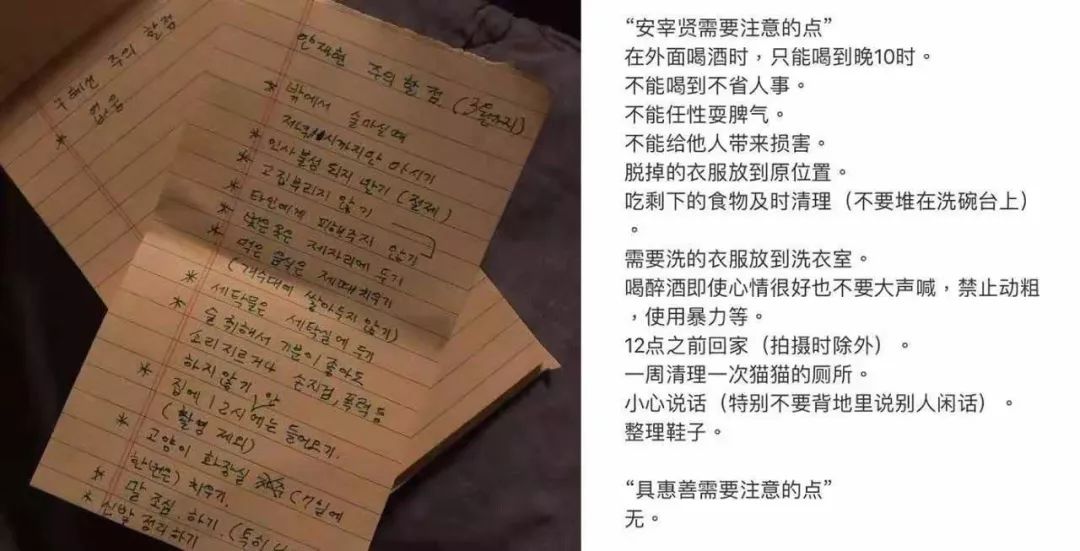 구혜선 주의 할점
없음
안재현 주의 할 점
* 밖에서 술마실때
저녁 10시까지만 마시기
* 인사불성 되지 말기 (절제)
* 고집부리지 않기
* 타인에게 피해주지 않기
* 벗은 옷은 제자리에 두기
* 먹은 음식은 제때 치우기
(개수대에 쌓아두지 않기)
* 세탁물은 세탁실에 두기
* 술 취해서 기분이 좋아도
소리지르거나 손찌검, 폭력 등
하지 않기
* 집에 12시 안에는 들어오기.
(촬영 제외)
* 고양이 화장실 (7일에
한번은) 치우기.
* 말 조심. 하기. (특히
* 신발 정리하기
“安宰贤需要注意的点”
在外面喝酒时，只能喝到晚10时。
不能喝到不省人事。
不能任性耍脾气。
不能给他人带来损害。
脱掉的衣服放到原位置。
吃剩下的食物及时清理（不要堆在洗碗台上）
。
需要洗的衣服放到洗衣室。
喝醉酒即使心情很好也不要大声喊，禁止动粗
，使用暴力等。
12点之前回家（拍摄时除外）。
一周清理一次猫猫的厕所。
小心说话（特别不要背地里说别人闲话）。
整理鞋子。
“具惠善需要注意的点”
无。